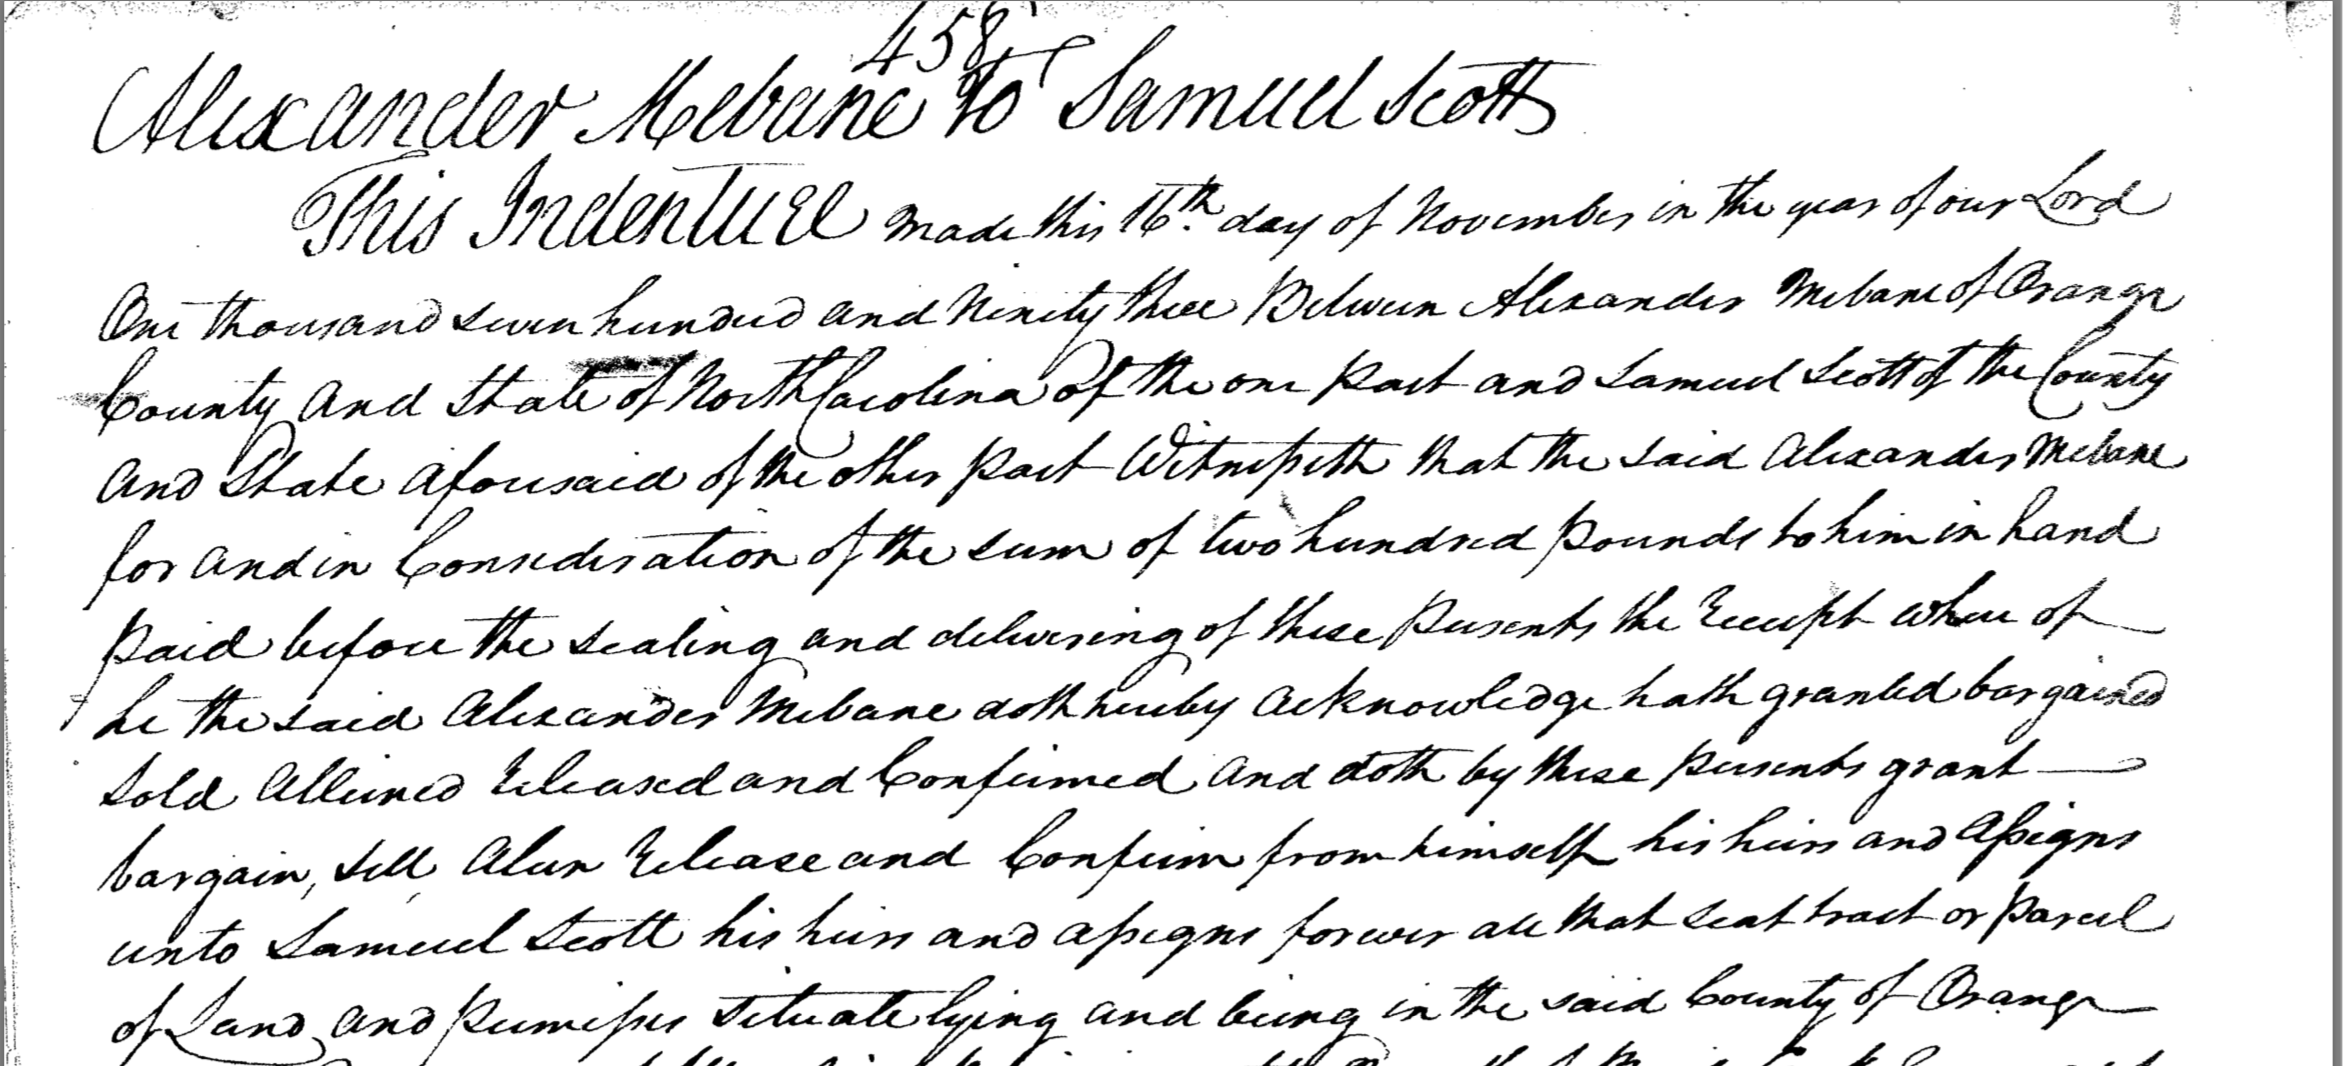 458
Alexander Mebane to Samuel Scott
This Indenture made this 16th day of November in the year of our Lord
One thousand seven hundred and Ninety three Between Alexander Mebane of Orange
County and State of North Carolina of the one part and Samuel Scott of the County
and State aforesaid of the other part Witnesseth that the said Alexander Mebane
for and in Consideration of the sum of two hundred pounds to him in hand
paid before the sealing and delivering of these presents the Receipt where of
he the said Alexander Mebane doth hereby acknowledge hath granted bargained
sold Alliened Released and Confirmed and doth by these presents grant
bargain, sell Alien Release and Confirm from himself his heirs and assigns
unto Samuel Scott his heirs and assigns forever all that seat tract or parcel
of Land and premises situate lying and being in the said County of Orange